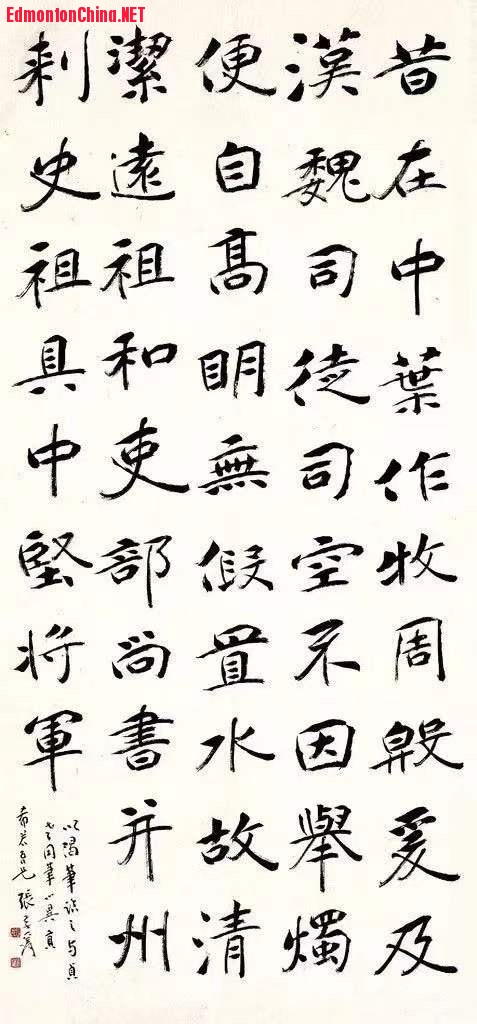 EdmontonChina.NET
昔在中葉作牧周殷爰及
漢魏司徒司空不因舉燭
便自髙明無假置水故清
潔遠祖和吏部尚書并州
刺史祖具中堅將軍
以渴筆臨之与貞
同筆
張